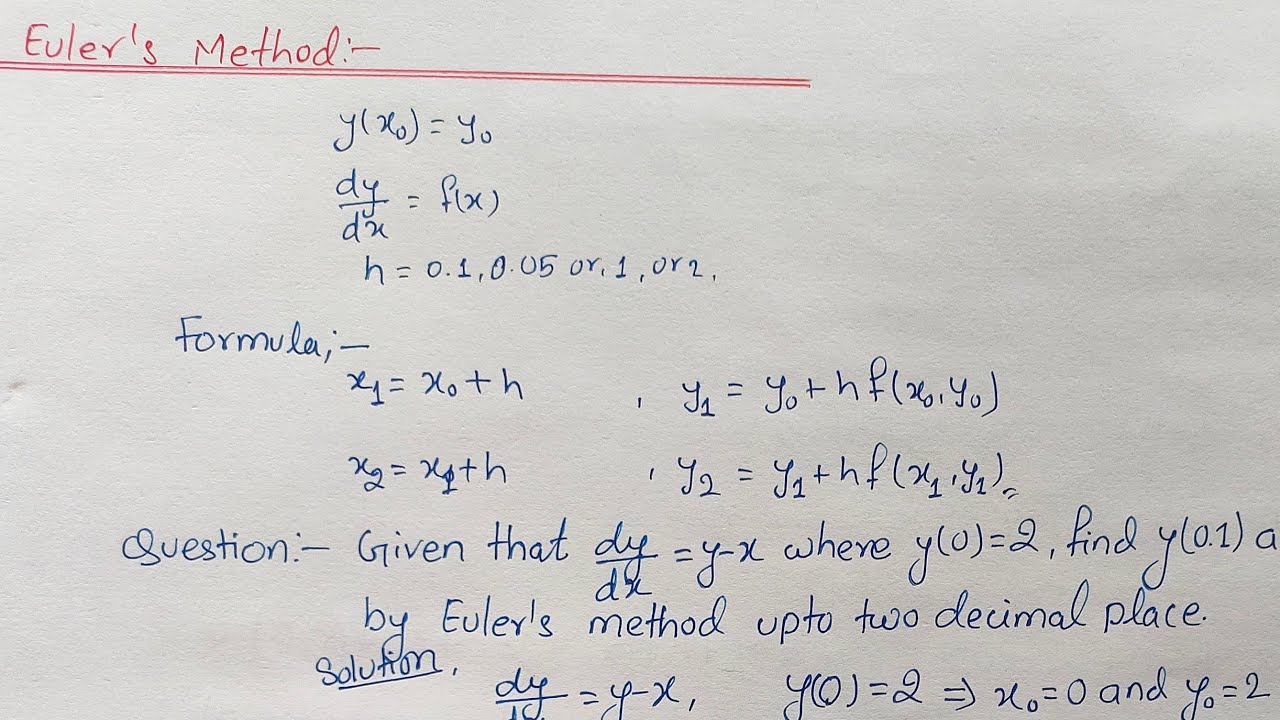 Euler's Method:-
y(x₀) = y₀
dy/dx = f(x)
h = 0.1, 0.05 or. 1, or 2,
Formula;-
x₁ = x₀ + h , y₁ = y₀ + h f(x₀, y₀)
x₂ = x₁ + h , y₂ = y₁ + h f(x₁, y₁)
Question:- Given that dy/dx = y-x where y(0)=2, find y(0.1) a
by Euler's method upto two decimal place.
Solution,
dy/ = y-x, y(0)=2 ⇒ x₀=0 and y₀=2